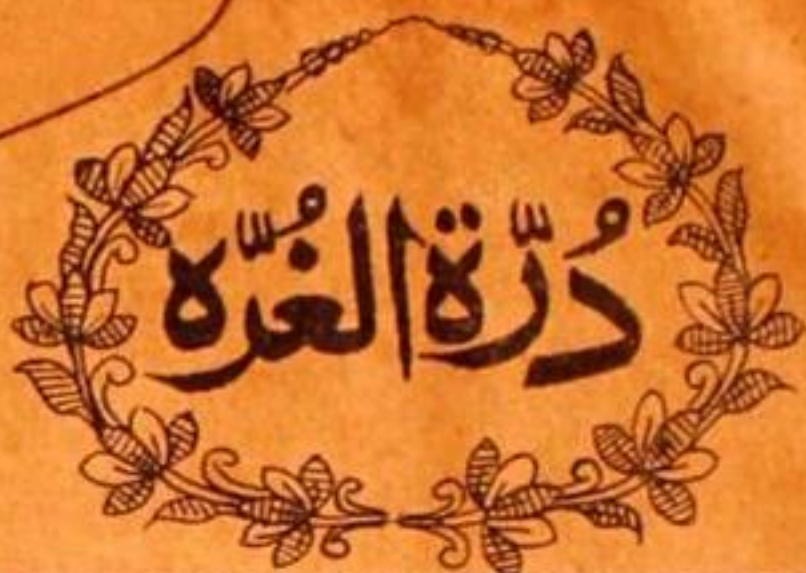 دُرّة الغُرّه